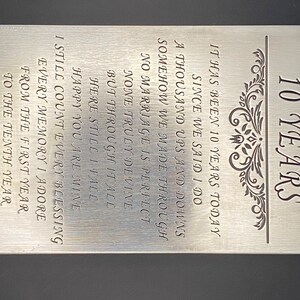 10 YEARS
IT HAS BEEN 10 YEARS TODAY
SINCE WE SAID I DO
A THOUSAND UPS AND DOWNS
SOMEHOW WE MADE THROUGH
NO MARRIAGE IS PERFECT
NONE TRULY DEVINE
BUT THROUGH IT ALL
HERE STILL I FALL
HAPPY YOU ARE MINE
I STILL COUNT EVERY BLESSING
EVERY MEMORY I ADORE
FROM THE FIRST YEAR
TO THE TENTH YEAR